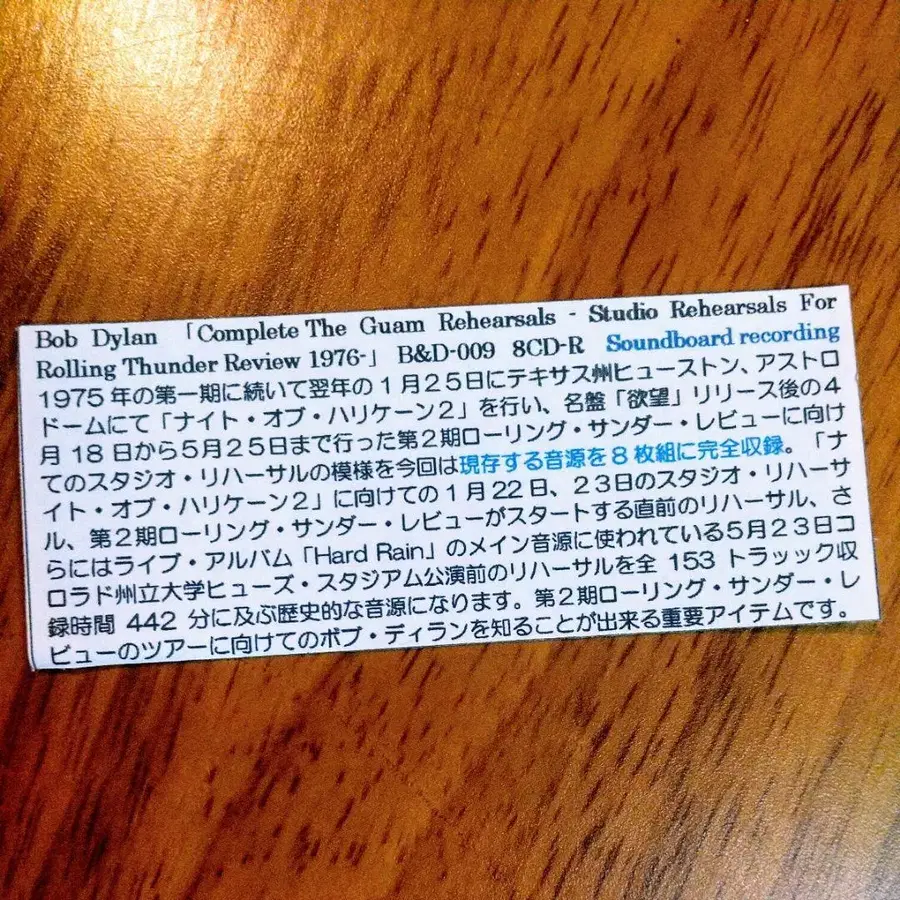 Bob Dylan 「Complete The Guam Rehearsals - Studio Rehearsals For
Rolling Thunder Review 1976-」 B&D-009 8CD-R Soundboard recording
1975年の第一期に続いて翌年の1月25日にテキサス州ヒューストン、アストロ
ドームにて「ナイト・オブ・ハリケーン2」を行い、名盤「欲望」リリース後の4
月18日から5月25日まで行った第2期ローリング・サンダー・レビューに向け
てのスタジオ・リハーサルの模様を今回は現存する音源を8枚組に完全収録。「ナ
イト・オブ・ハリケーン2」に向けての1月22日、23日のスタジオ・リハーサ
ル、第2期ローリング・サンダー・レビューがスタートする直前のリハーサル、さ
らにはライブ・アルバム「Hard Rain」のメイン音源に使われている5月23日コ
ロラド州立大学ヒューズ・スタジアム公演前のリハーサルを全 153 トラック収
録時間 442 分に及ぶ歴史的な音源になります。第2期ローリング・サンダー・レ
ビューのツアーに向けてのボブ・ディランを知ることが出来る重要アイテムです。